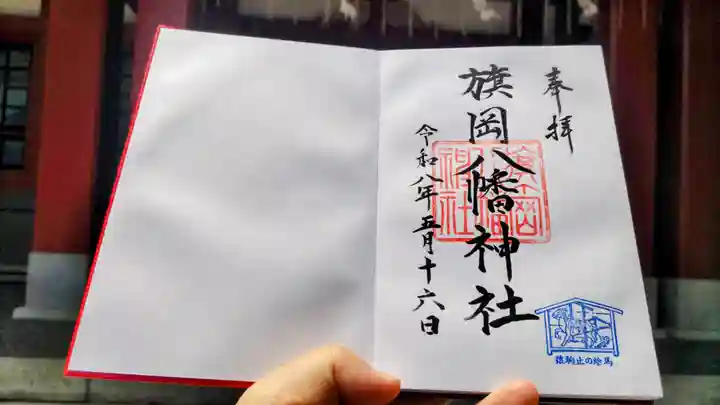 奉拝
旗岡八幡神社
令和八年五月十六日
猿駒止の絵馬